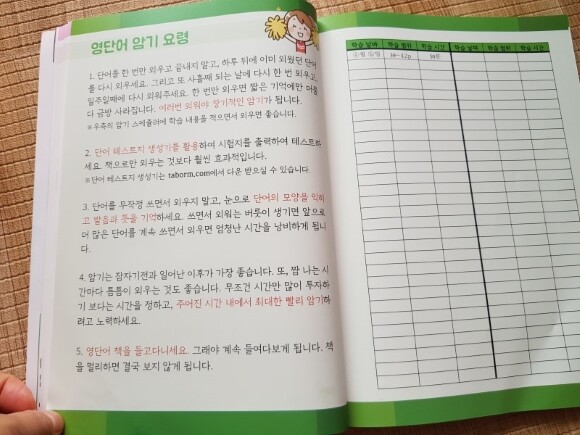 영단어 암기 요령
1. 단어를 한 번만 외우고 끝내지 말고, 하루 뒤에 이미 외웠던 단어
를 다시 외우세요. 그리고 또 사흘째 되는 날에 다시 한 번 외우고,
일주일째에 다시 외워주세요. 한 번만 외우면 짧은 기억에만 머물
다 금방 사라집니다. 여러번 외워야 장기적인 암기가 됩니다.
※우측의 암기 스케줄러에 학습 내용을 적으면서 외우면 좋습니다.
2. 단어 테스트지 생성기를 활용하여 시험지를 출력하여 테스트하
세요. 책으로만 외우는 것보다 훨씬 효과적입니다.
※단어 테스트지 생성기는 taborm.com에서 다운 받으실 수 있습니다.
3. 단어를 무작정 쓰면서 외우지 말고, 눈으로 단어의 모양을 익히
고 발음과 뜻을 기억하세요. 쓰면서 외우는 버릇이 생기면 앞으로
더 많은 단어를 계속 쓰면서 외우면 엄청난 시간을 낭비하게 됩니
다.
4. 암기는 잠자기전과 일어난 이후가 가장 좋습니다. 또, 짬 나는 시
간마다 틈틈이 외우는 것도 좋습니다. 무조건 시간만 많이 투자하
기 보다는 시간을 정하고, 주어진 시간 내에서 최대한 빨리 암기하
려고 노력하세요.
5. 영단어 책을 들고다니세요. 그래야 계속 들여다보게 됩니다. 책
을 멀리하면 결국 보지 않게 됩니다.
학습 날짜 학습 범위 학습 시간 학습 날짜 학습 범위 학습 시간
월 일 30~42p 50분